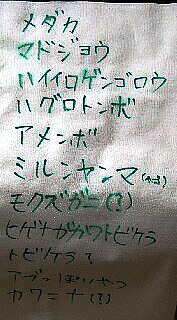 メダカ
マドジョウ
ハイイロゲンゴロウ
ハグロトンボ
アメンボ
ミルンヤンマ
モクズガニ(?)
ヒゲナガカワトビケラ
トビケラ?
アブっぽいやつ
カワニナ(?)